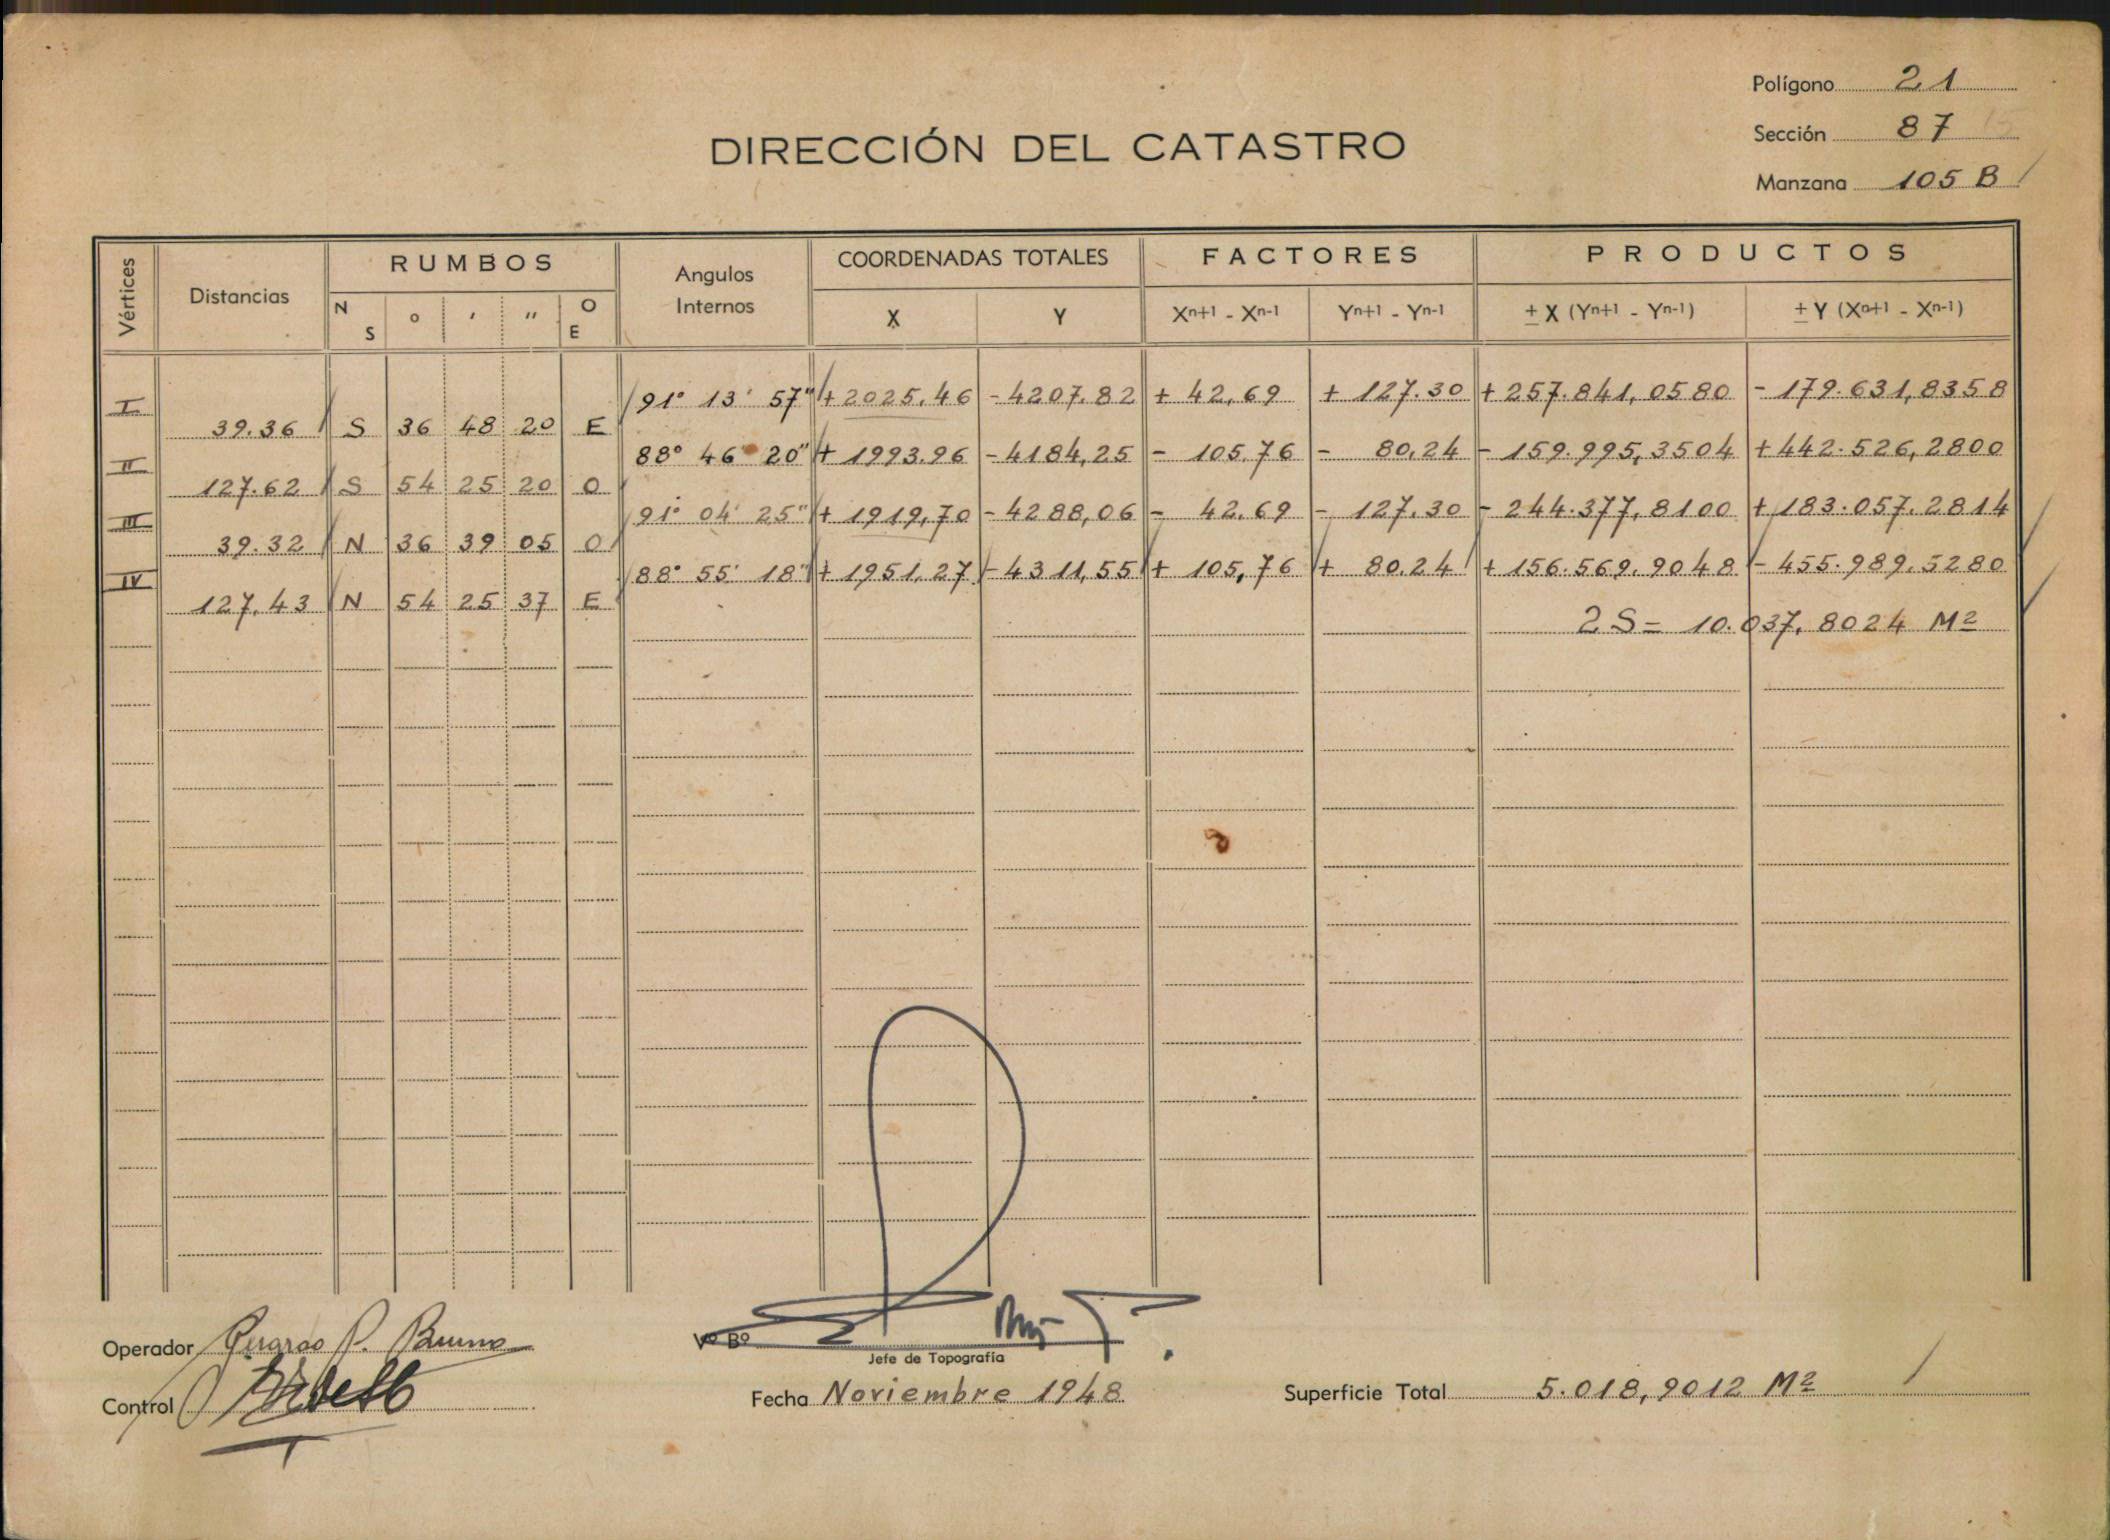 Polígono 21
DIRECCIÓN DEL CATASTRO
Sección 87
Manzana 105 B
Vértices Distancias RUMBOS Angulos Internos COORDENADAS TOTALES FACTORES PRODUCTOS
N S ° ' " O E X Y Xn+1 - Xn-1 Yn+1 - Yn-1 ± X (Yn+1 - Yn-1) ± Y (Xn+1 - Xn-1)
I 91° 13' 57" + 2025.46 - 4207.82 + 42,69 + 127.30 + 257.841,0580 - 179.631,8358
39.36 S 36 48 20 E
II 88° 46' 20" + 1993.96 - 4184,25 - 105.76 - 80,24 - 159.995,3504 + 442.526,2800
127.62 S 54 25 20 O
III 91° 04' 25" + 1919,70 - 4288,06 - 42.69 - 127.30 - 244.377,8100 + 183.057.2814
39.32 N 36 39 05 O
IV 88° 55' 18" + 1951,27 - 4311,55 + 105,76 + 80.24 + 156.569.9048 - 455.989.5280
127.43 N 54 25 37 E
2 S = 10.037,8024 M2
Operador Gerardo P. Bruno
Vº Bº
Jefe de Topografía
Control
Fecha Noviembre 1948
Superficie Total 5.018,9012 M2